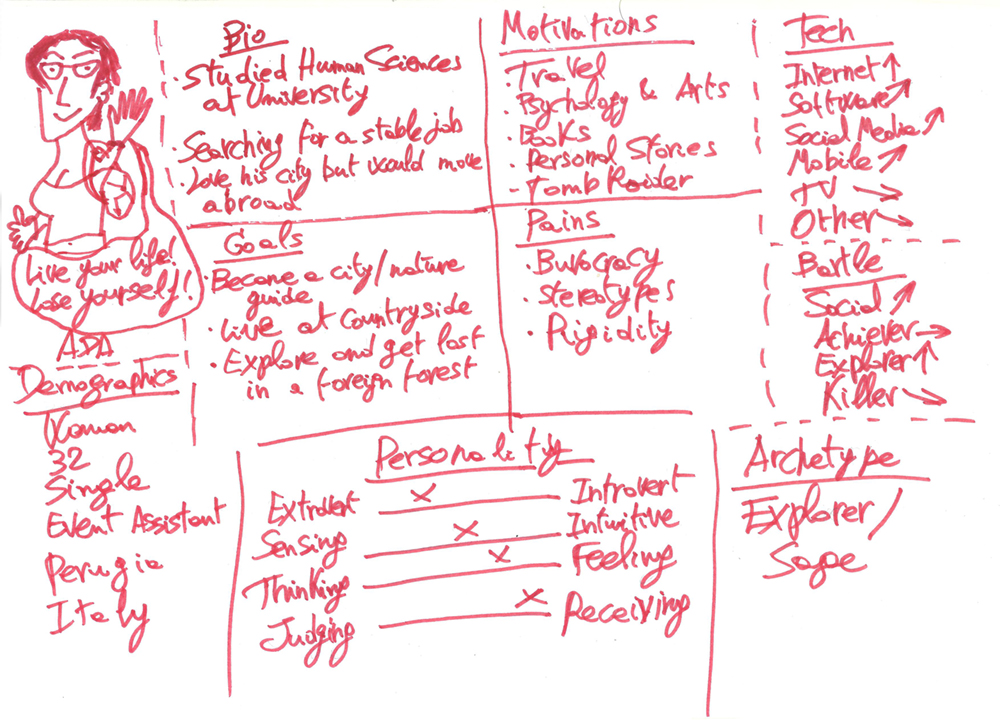 Live your life!
Lose yourself!
ADA
Demographics
Woman
32
Single
Event Assistant
Perugia
Italy
Bio
• Studied Human Sciences
at University
• Searching for a stable job
• Love his city but would move
abroad
Goals
• Become a city/nature
guide
• Live at Countryside
• Explore and get lost
in a foreign forest
Motivations
• Travel
• Psychology & Arts
• Books
• Personal Stories
- Tomb Raider
Pains
• Burocracy
• Stereotypes
• Rigidity
Tech
Internet ↑
Software ↗
Social Media ↗
Mobile ↗
TV →
Other ↘
Bartle
Social ↗
Achiever →
Explorer ↑
Killer ↘
Personality
Extrovert Introvert
Sensing Intuitive
Thinking Feeling
Judging Receiving
Archetype
Explorer/
Sage